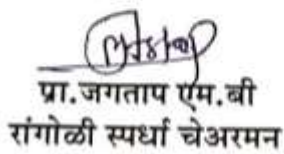 प्रा.जगताप एम.बी
रांगोळी स्पर्धा चेअरमन